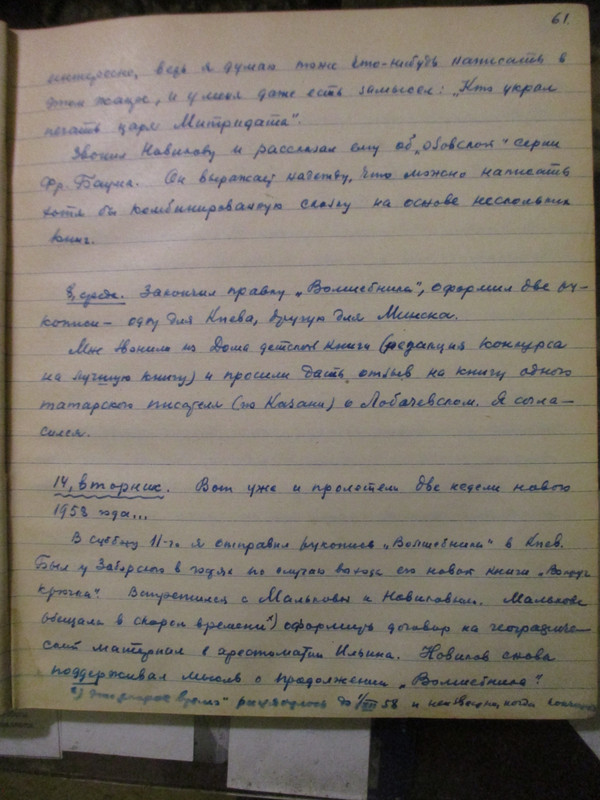 61.
интересно, ведь я думаю тоже что-нибудь написать в
этом жанре, и у меня даже есть замысел: „Кто украл
печать царя Митридата“.
Звонил Новикову и рассказал ему об „Озовской“ серии
Фр. Баума. Он выражает надежду, что можно написать
хотя бы комбинированную сказку на основе нескольких
книг.
8, среда. Закончил правку „Волшебника“, оформил две ру-
кописи – одну для Киева, другую для Минска.
Мне звонили из Дома детской книги (редакция конкурса
на лучшую книгу) и просили дать отзыв на книгу одного
татарского писателя (из Казани) о Лобачевском. Я согла-
сился.
14, вторник. Вот уже и пролетели две недели нового
1958 года...
В субботу 11-го я отправил рукопись „Волшебника“ в Киев.
Был у Заборского в гостях по случаю выхода его новой книги „Вокруг
. Встретился с Мальковым и Новиковым. Мальков
обещал в скором времени х) оформить договор на географиче-
ский материал в хрестоматии Ильина. Новиков снова
поддерживал мысль о продолжении „Волшебника“.
х) Это „скорое время“ растянулось до 1/VIII 58 и неизвестно, когда